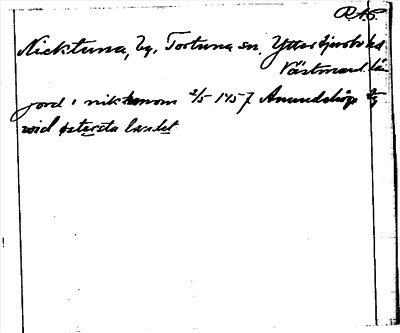 RAP.
Nicktuna, by, Tortuna sn. Yttertjurbo hd
Västmanl. län
jord i niktunom 2/5 1457 Anundshög
wid østersta landet